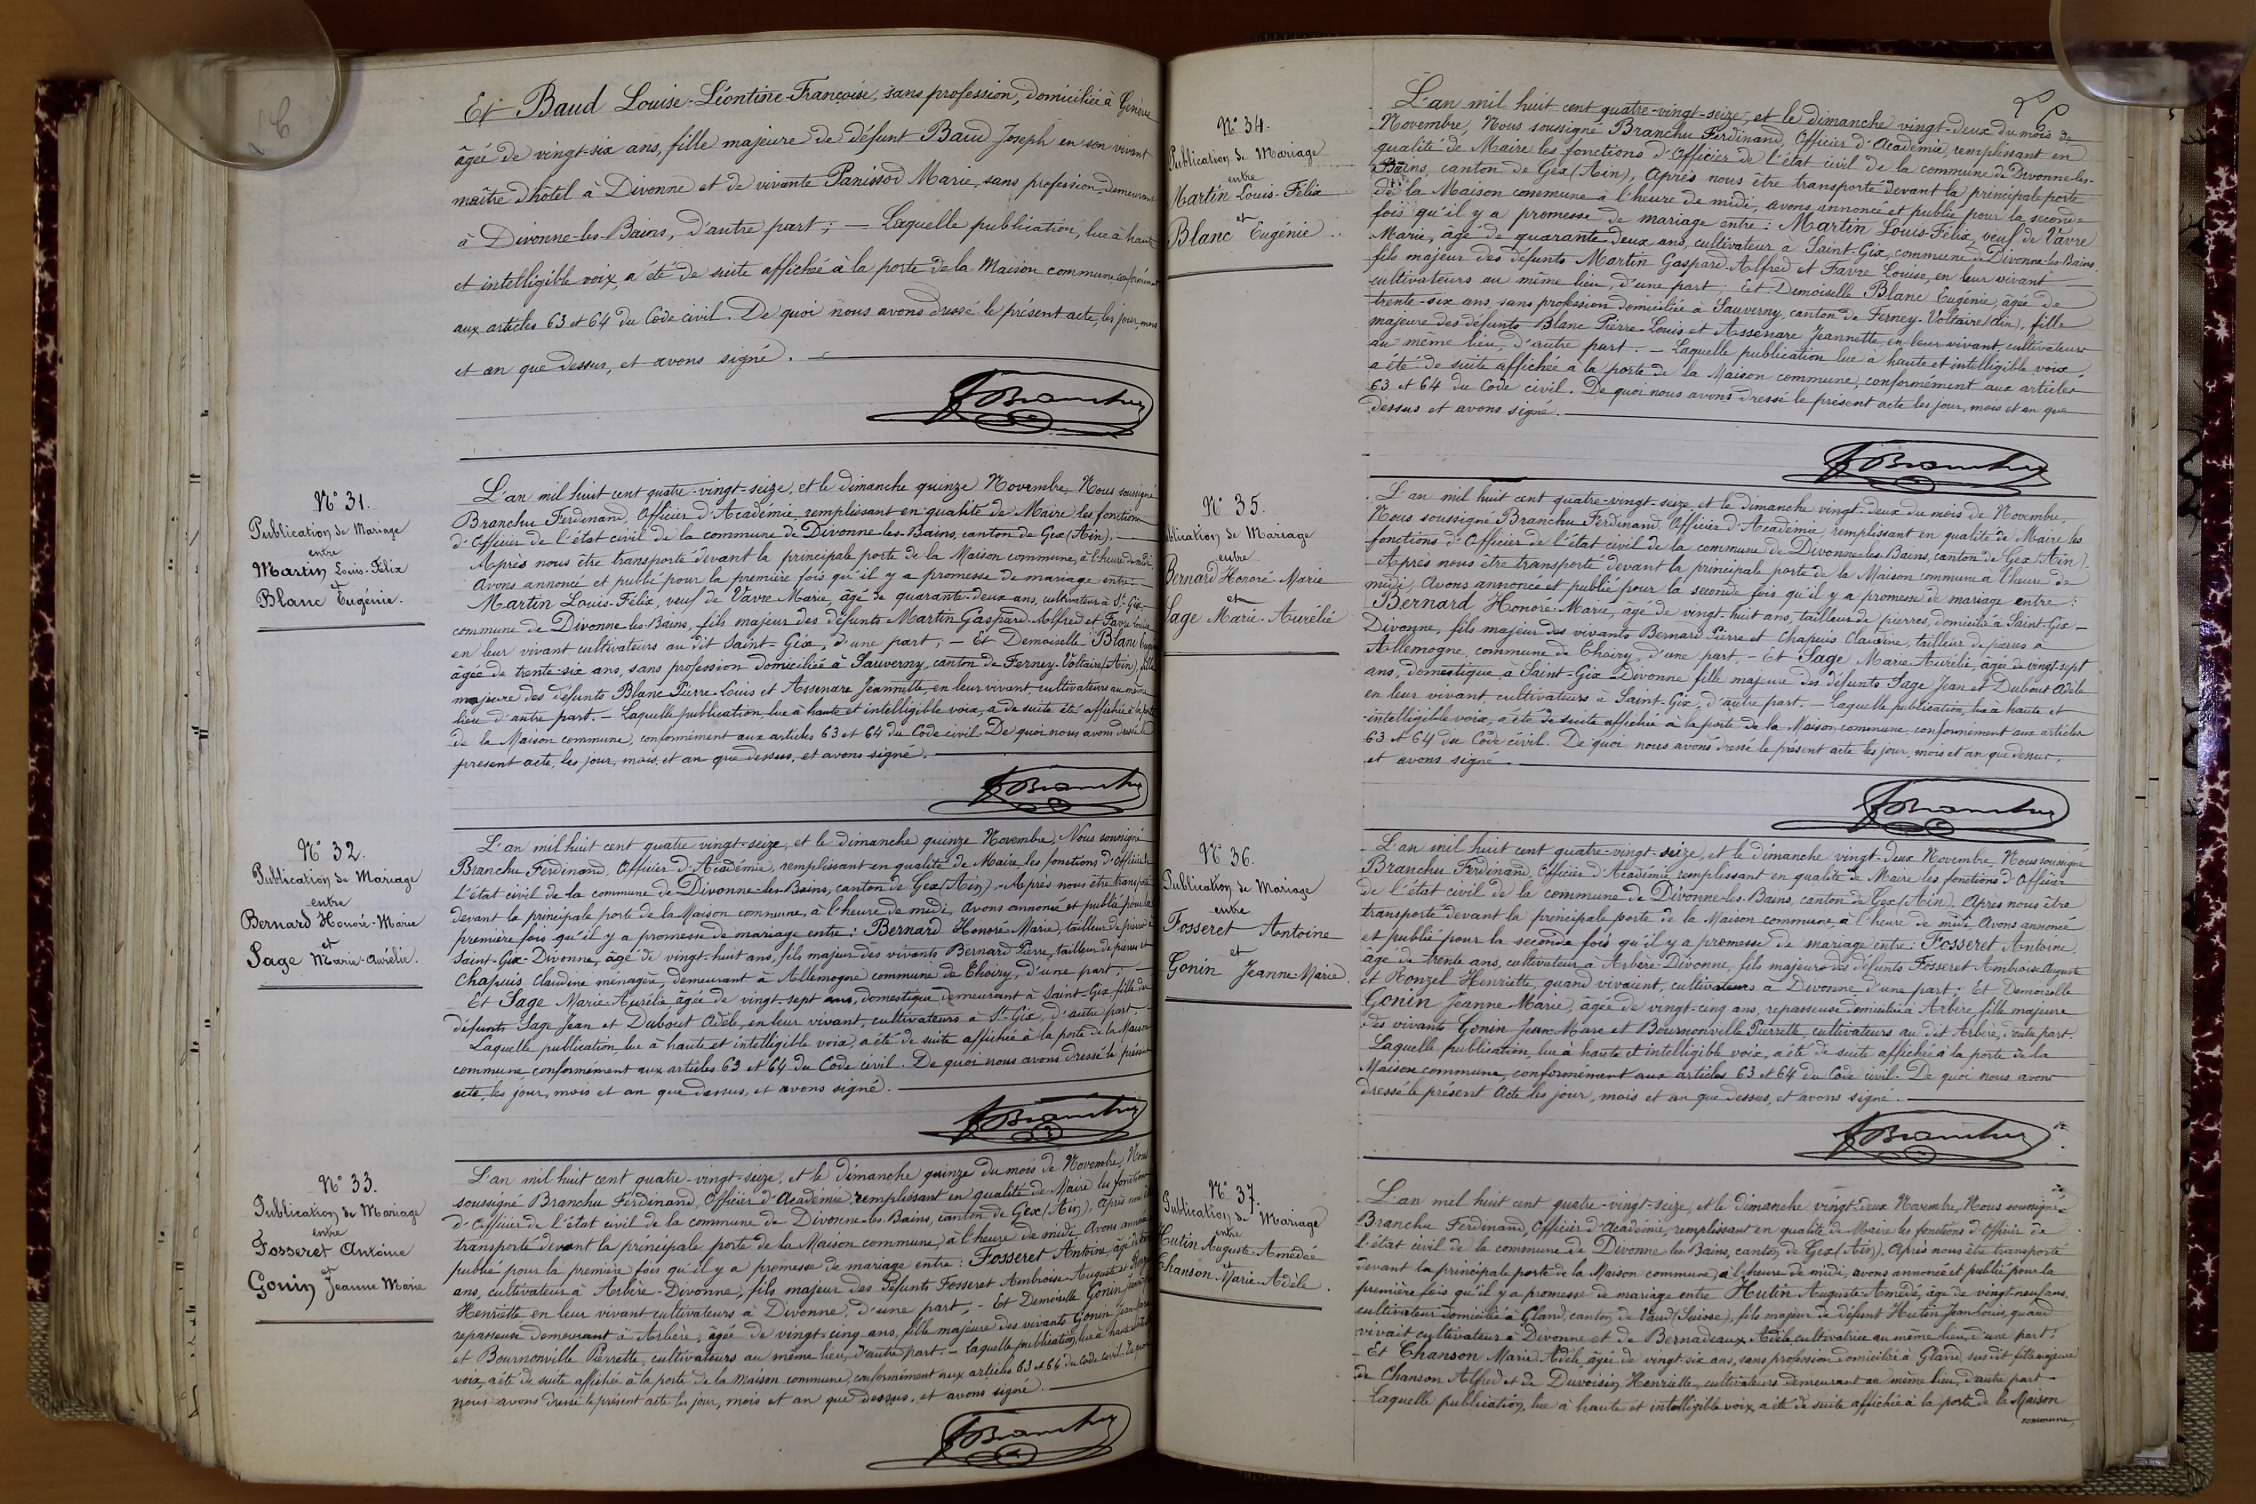 Et Baud Louise-Léontine-Françoise, sans profession, domiciliée à Genève
âgée de vingt-six ans, fille majeure de défunt Baud Joseph en son vivant
maître d'hôtel à Divonne et de vivante Panissod Marie, sans profession, demeurant
à Divonne-les-Bains, d'autre part; — Laquelle publication, lue à haute
et intelligible voix, a été de suite affichée à la porte de la Maison commune, conformément
aux articles 63 et 64 du Code civil. De quoi nous avons dressé le présent acte, les jour, mois
et an que dessus, et avons signé. —
F Branchu
N° 31.
Publication de Mariage
entre
Martin Louis-Félix
et
Blanc Eugénie.
L'an mil huit cent quatre-vingt-seize, et le dimanche quinze Novembre, Nous soussigné
Branchu Ferdinand, Officier d'Académie, remplissant en qualité de Maire les fonctions
d'Officier de l'état civil de la commune de Divonne-les-Bains, canton de Gex (Ain). —
Après nous être transporté devant la principale porte de la Maison commune, à l'heure de midi,
Avons annoncé et publié pour la première fois qu'il y a promesse de mariage entre: —
Martin Louis-Félix, veuf de Vavre Marie, âgé de quarante-deux ans, cultivateur à St-Gix,
commune de Divonne-les-Bains, fils majeur des défunts Martin Gaspard-Alfred et Favre Louise
en leur vivant cultivateurs au dit Saint-Gix, d'une part; — Et Demoiselle Blanc Eugénie
âgée de trente-six ans, sans profession domiciliée à Sauverny, canton de Ferney-Voltaire (Ain), fille
majeure des défunts Blanc Pierre-Louis et Assenare Jeannette, en leur vivant, cultivateurs au même
lieu d'autre part. — Laquelle publication, lue à haute et intelligible voix, a de suite été affichée à la porte
de la Maison commune, conformément aux articles 63 et 64 du Code civil. De quoi nous avons dressé le
présent acte, les jour, mois, et an que dessus, et avons signé. —
F Branchu
N° 32.
Publication de Mariage
entre
Bernard Honoré-Marie
et
Sage Marie-Aurélie.
L'an mil huit cent quatre vingt-seize, et le dimanche quinze Novembre, Nous soussigné
Branchu Ferdinand, Officier d'Académie, remplissant en qualité de Maire, les fonctions d'Officier de
l'état civil de la commune de Divonne-les-Bains, canton de Gex (Ain). Après nous être transporté
devant la principale porte de la Maison commune, à l'heure de midi, avons annoncé et publié pour la
première fois qu'il y a promesse de mariage entre: Bernard Honoré-Marie, tailleur de pierres à
Saint-Gix-Divonne, âgé de vingt-huit ans, fils majeur des vivants Bernard Pierre, tailleur de pierres et
Chapuis Claudine ménagère, demeurant à Allemogne commune de Thoiry, d'une part; —
Et Sage Marie-Aurélie âgée de vingt-sept ans, domestique demeurant à Saint-Gix fille des
défunts Sage Jean et Dubout Adèle, en leur vivant, cultivateurs à St-Gix, d'autre part. —
Laquelle publication, lue à haute et intelligible voix, a été de suite affichée à la porte de la Maison
commune conformément aux articles 63 et 64 du Code civil. De quoi nous avons dressé le présent
acte, les jour, mois et an que dessus, et avons signé. —
F Branchu
N° 33.
Publication de Mariage
entre
Fosseret Antoine
et
Gonin Jeanne Marie
L'an mil huit cent quatre-vingt-seize, et le dimanche quinze du mois de Novembre, Nous
soussigné Branchu Ferdinand, Officier d'Académie remplissant en qualité de Maire les fonctions
d'Officier de l'état civil de la commune de Divonne-les-Bains, canton de Gex (Ain), Après nous être
transporté devant la principale porte de la Maison commune, à l'heure de midi, Avons annoncé
publié pour la première fois qu'il y a promesse de mariage entre: Fosseret Antoine, âgé de trente
ans, cultivateur à Arbère-Divonne, fils majeur des défunts Fosseret Ambroise Auguste et
Henriette en leur vivant cultivateurs à Divonne, d'une part; — Et Demoiselle Gonin Jeanne
repasseuse demeurant à Arbère, âgée de vingt-cinq ans, fille majeure des vivants Gonin Jean Marc
et Bournonville Pierrette, cultivateurs au même lieu, d'autre part. — Laquelle publication, lue à haute
voix, a été de suite affichée à la porte de la Maison commune, conformément aux articles 63 et 64 du Code civil. De quoi
nous avons dressé le présent acte les jour, mois et an que dessus, et avons signé. —
F Branchu
N° 34.
Publication de Mariage
entre
Martin Louis-Félix
et
Blanc Eugénie.
L'an mil huit cent quatre-vingt-seize, et le dimanche vingt-deux du mois de
Novembre, Nous soussigné Branchu Ferdinand, Officier d'Académie, remplissant en
qualité de Maire les fonctions d'Officier de l'état civil de la commune de Divonne-les-
Bains, canton de Gex (Ain), Après nous être transporté devant la principale porte
de la Maison commune à l'heure de midi, avons annoncé et publié pour la seconde
fois qu'il y a promesse de mariage entre: Martin Louis-Félix, veuf de Vavre
Marie, âgé de quarante-deux ans, cultivateur à Saint-Gix, commune de Divonne-les-Bains
fils majeur des défunts Martin Gaspard-Alfred et Favre Louise, en leur vivant
cultivateurs au même lieu, d'une part; Et Demoiselle Blanc Eugénie, âgée de
trente-six ans, sans profession domiciliée à Sauverny, canton de Ferney-Voltaire (Ain), fille
majeure des défunts Blanc Pierre-Louis et Assenare Jeannette, en leur vivant, cultivateurs
au même lieu, d'autre part. — Laquelle publication lue à haute et intelligible voix
a été de suite affichée à la porte de la Maison commune, conformément aux articles
63 et 64 du Code civil. De quoi nous avons dressé le présent acte les jour, mois et an que
dessus et avons signé. —
F Branchu
N° 35.
Publication de Mariage
entre
Bernard Honoré-Marie
et
Sage Marie-Aurélie
L'an mil huit cent quatre-vingt-seize, et le dimanche vingt-deux du mois de Novembre,
Nous soussigné Branchu Ferdinand, Officier d'Académie, remplissant en qualité de Maire les
fonctions d'Officier de l'état civil de la commune de Divonne-les-Bains, canton de Gex (Ain).
Après nous être transporté devant la principale porte de la Maison commune à l'heure de
midi, Avons annoncé et publié pour la seconde fois qu'il y a promesse de mariage entre:
Bernard Honoré-Marie, âgé de vingt-huit ans, tailleur de pierres, domicilié à Saint-Gix-
Divonne, fils majeur des vivants Bernard Pierre et Chapuis Claudine, tailleur de pierres à
Allemogne, commune de Thoiry, d'une part. — Et Sage Marie-Aurélie, âgée de vingt-sept
ans, domestique à Saint-Gix-Divonne fille majeure des défunts Sage Jean et Dubout Adèle
en leur vivant, cultivateurs à Saint-Gix, d'autre part. — Laquelle publication, lue à haute et
intelligible voix, a été de suite affichée à la porte de la Maison commune conformément aux articles
63 et 64 du Code civil. De quoi nous avons dressé le présent acte les jour, mois et an que dessus,
et avons signé. —
F Branchu
N° 36.
Publication de Mariage
entre
Fosseret Antoine
et
Gonin Jeanne-Marie
L'an mil huit cent quatre-vingt-seize, et le dimanche vingt-deux Novembre, Nous soussigné
Branchu Ferdinand, Officier d'Académie remplissant en qualité de Maire les fonctions d'Officier
de l'état civil de la commune de Divonne-les-Bains, canton de Gex (Ain). Après nous être
transporté devant la principale porte de la Maison commune, à l'heure de midi Avons annoncé
et publié pour la seconde fois qu'il y a promesse de mariage entre: Fosseret Antoine,
âgé de trente ans, cultivateur à Arbère-Divonne, fils majeur des défunts Fosseret Ambroise Auguste
et Ronzel Henriette, quand vivaient, cultivateurs à Divonne d'une part; Et Demoiselle
Gonin Jeanne-Marie, âgée de vingt-cinq ans, repasseuse domiciliée à Arbère fille majeure
des vivants Gonin Jean-Marc et Bournonville Pierrette cultivateurs au dit Arbère, d'autre part.
Laquelle publication, lue à haute et intelligible voix, a été de suite affichée à la porte de la
Maison commune, conformément aux articles 63 et 64 du Code civil. De quoi nous avons
dressé le présent Acte les jour, mois et an que dessus, et avons signé. —
F Branchu
N° 37.
Publication de Mariage
entre
Hutin Auguste-Amédée
et
Chanson Marie-Adèle.
L'an mil huit cent quatre-vingt-seize, et le dimanche vingt-deux Novembre, Nous soussigné
Branchu Ferdinand, Officier d'Académie, remplissant en qualité de Maire les fonctions d'Officier de
l'état civil de la commune de Divonne les Bains, canton de Gex (Ain). Après nous être transporté
devant la principale porte de la Maison commune, à l'heure de midi, avons annoncé et publié pour la
première fois qu'il y a promesse de mariage entre Hutin Auguste-Amédé, âgé de vingt-neuf ans,
cultivateur domicilié à Gland, canton de Vaud (Suisse), fils majeur de défunt Hutin Jean Louis, quand
vivait cultivateur à Divonne et de Bernadeaux Adèle cultivatrice au même lieu d'une part;
— Et Chanson Marie-Adèle, âgée de vingt-six ans, sans profession domiciliée à Gland, susdit fille majeure
de Chanson Alfred et de Duvoisin Henriette, cultivateurs demeurant au même lieu, d'autre part —
Laquelle publication, lue à haute et intelligible voix, a été de suite affichée à la porte de la Maison
commune,